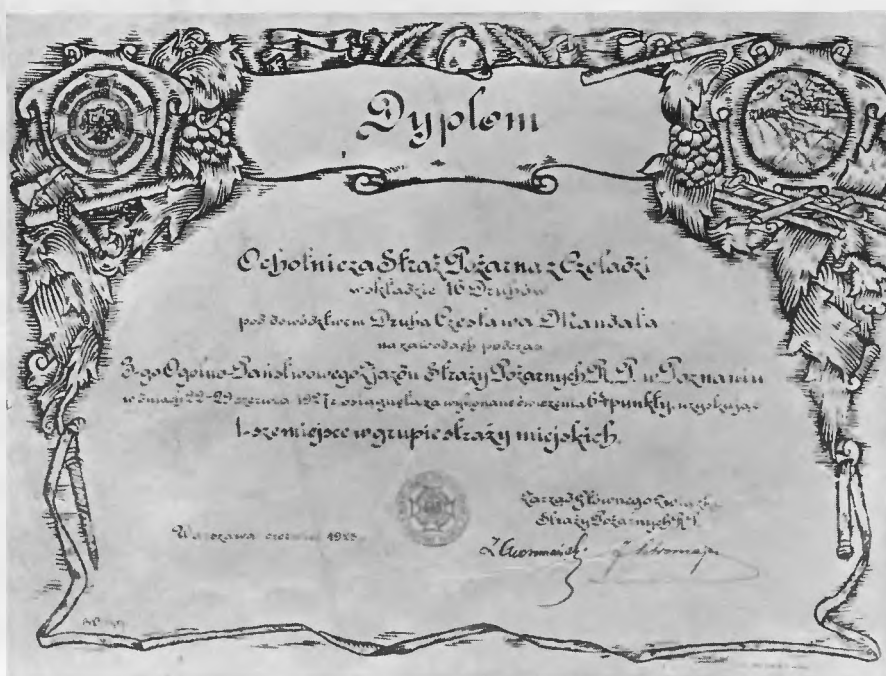 Dyplom
Ochotnicza Straż Pożarna z Czeladzi
w składzie 16 Druhów
pod dowództwem Druha Czesława Mandala
na zawodach podczas
3-go Ogólno-Państwowego Zjazdu Straży Pożarnych R.P. w Poznaniu
w dniach czerwca osiągnęła za wykonanie ćwiczenia punkty, uzyskując
1-sze miejsce w grupie straży miejskich.
Zarząd Głównego Związku
Warszawa czerwiec
Straży Pożarnych R.P.